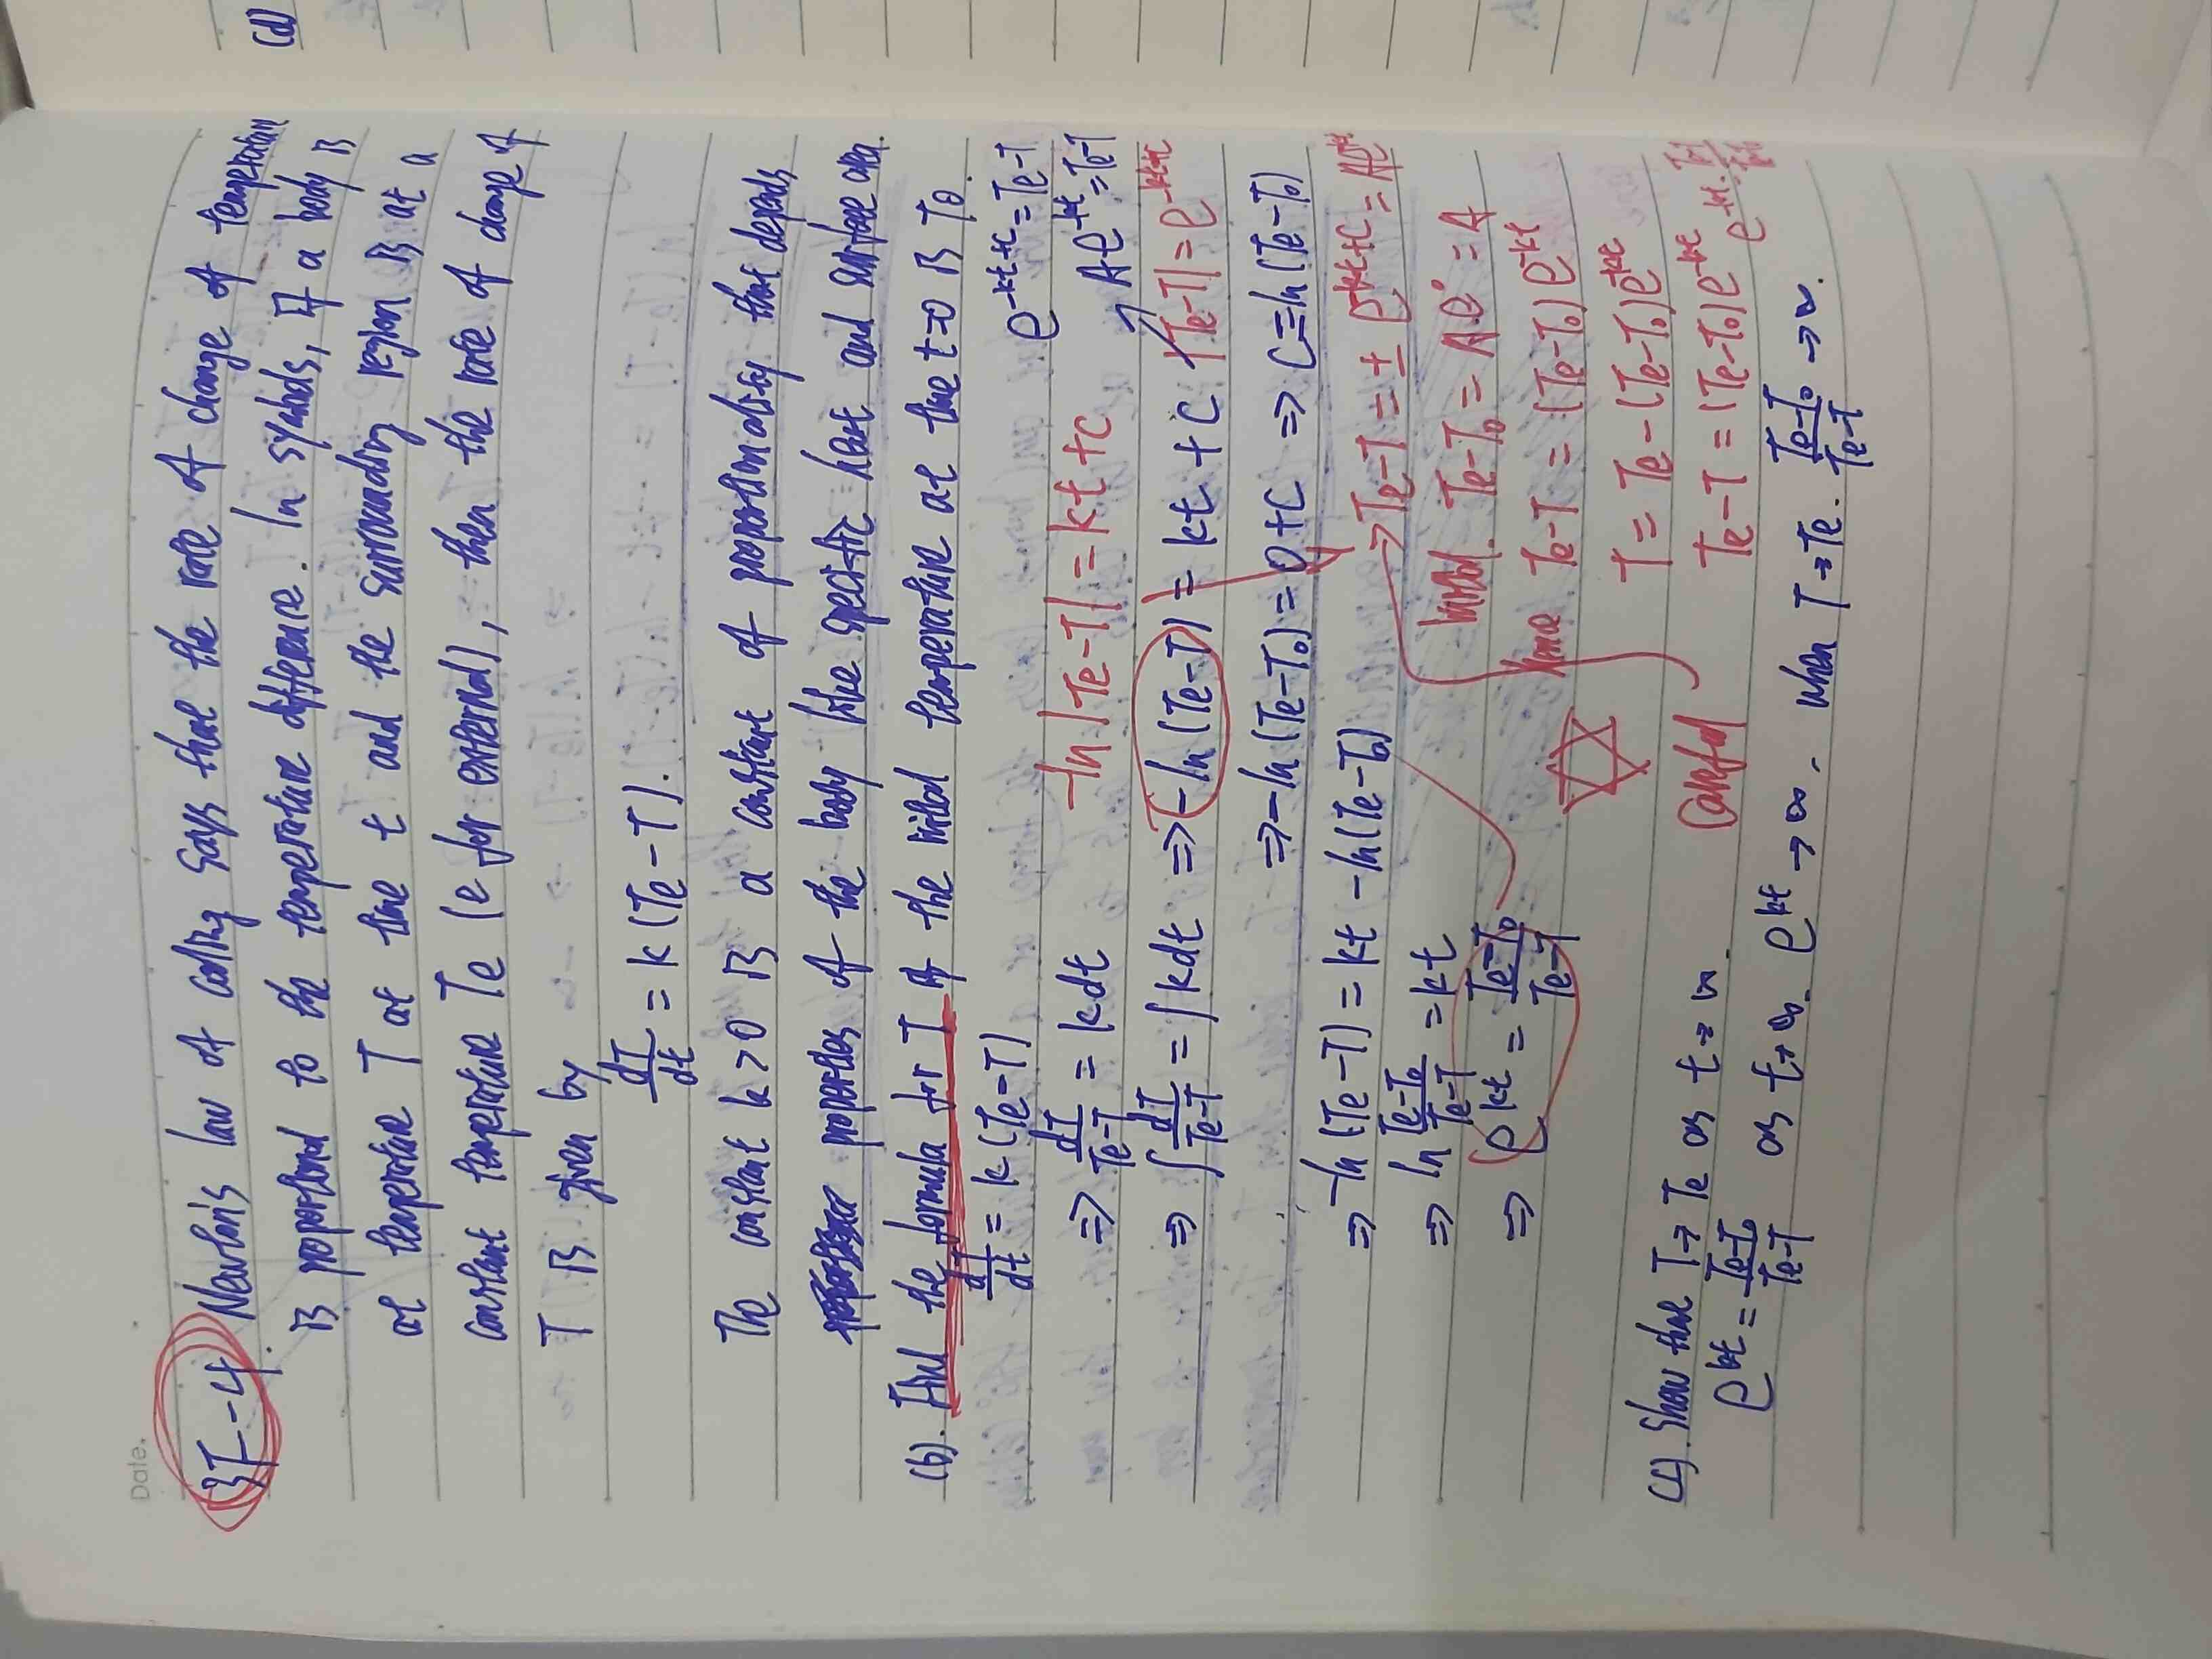 Date.
3F-4. Newton's law of cooling says that the rate of change of temperature
is proportional to the temperature difference. In symbols, if a body is
at temperature T at time t and the surrounding region is at a
constant temperature Te (e for external), then the rate of change of
T is given by
dT/dt = k(Te-T).
The constant k>0 is a constant of proportionality that depends
properties of the body like specific heat and surface area.
(b). Find the formula for T if the initial temperature at time t=0 is T0.
dT/dt = k(Te-T)
e^-kt+c = Te-T
⇒ dT/Te-T = kdt
-ln|Te-T| = kt+c
Ae^-kt = Te-T
⇒ ∫ dT/Te-T = ∫kdt ⇒ -ln(Te-T) = kt + C
|Te-T| = e^-kt+c
⇒ -ln(Te-T0) = 0+C ⇒ C = -ln(Te-T0)
⇒ -ln(Te-T) = kt -ln(Te-T0)
→ Te-T = ± e^-kt+C = Ae^-kt
⇒ ln Te-T0/Te-T = kt
Initial. Te-T0 = Ae^0 = A
⇒ e^kt = Te-T0/Te-T
time Te-T = (Te-T0)e^-kt
T = Te-(Te-T0)e^-kt
Careful
Te-T = (Te-T0)e^-kt
(c). Show that T→Te as t→∞.
e^kt = Te-T0/Te-T as t→∞. e^kt →∞. when T→Te. Te-T0/Te-T →∞.
(d)